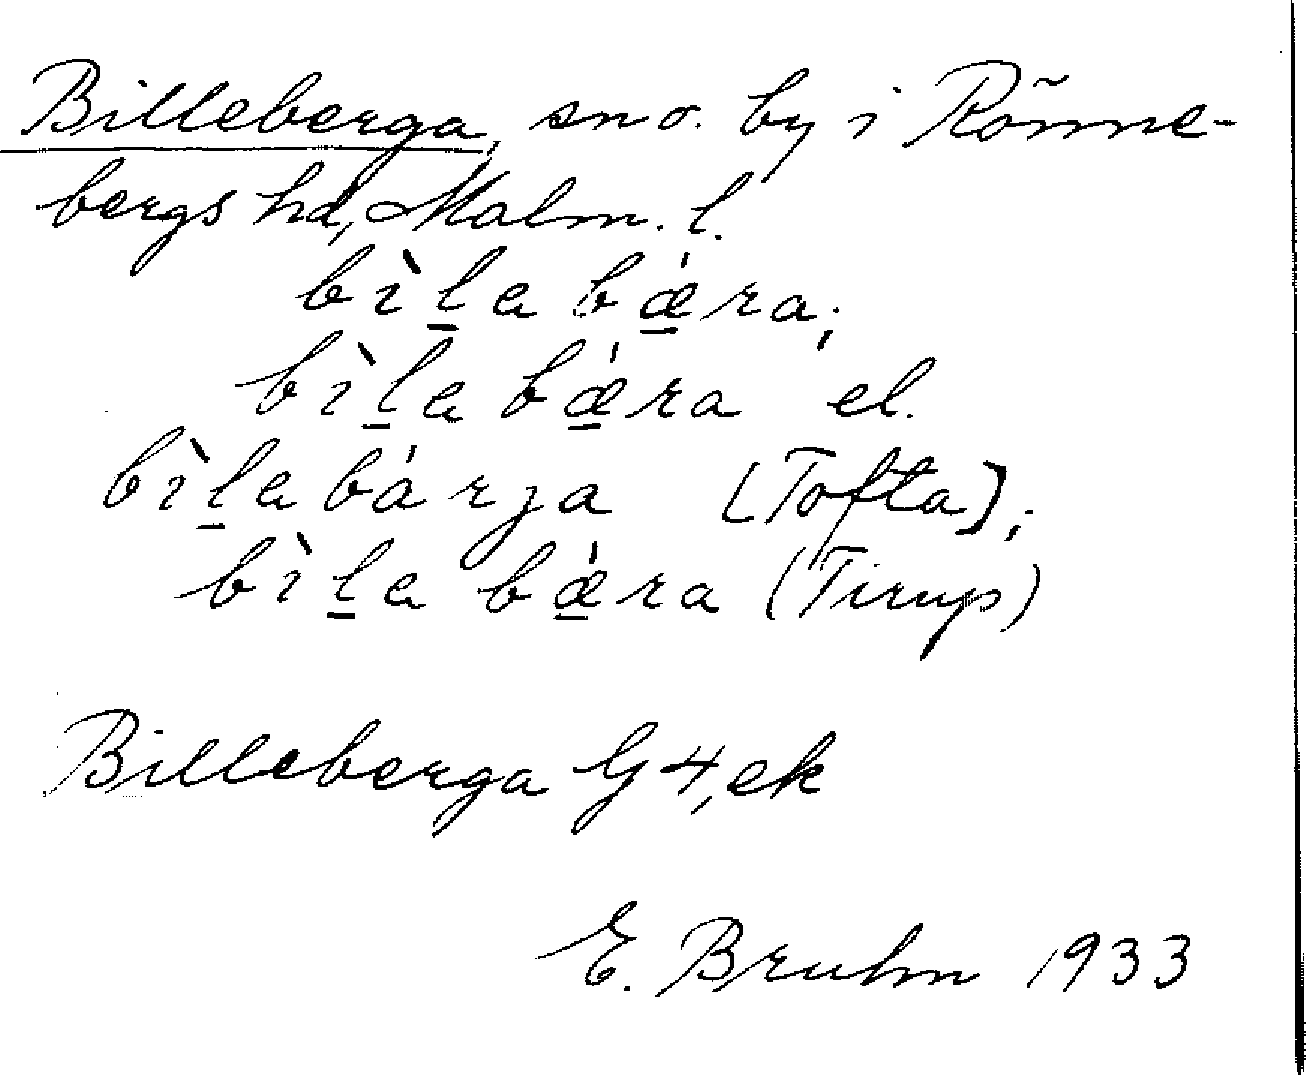 Billeberga, sn o. by i Rönne-
bergs hd, Malm. l.
bìl̲a bǽ̲ra;
bìl̲a bǽ̲ra el.
bìl̲a bárja [Tofta];
bìl̲a bǽ̲ra (Tirup)
Billeberga G 4, ek
E. Bruhn 1933